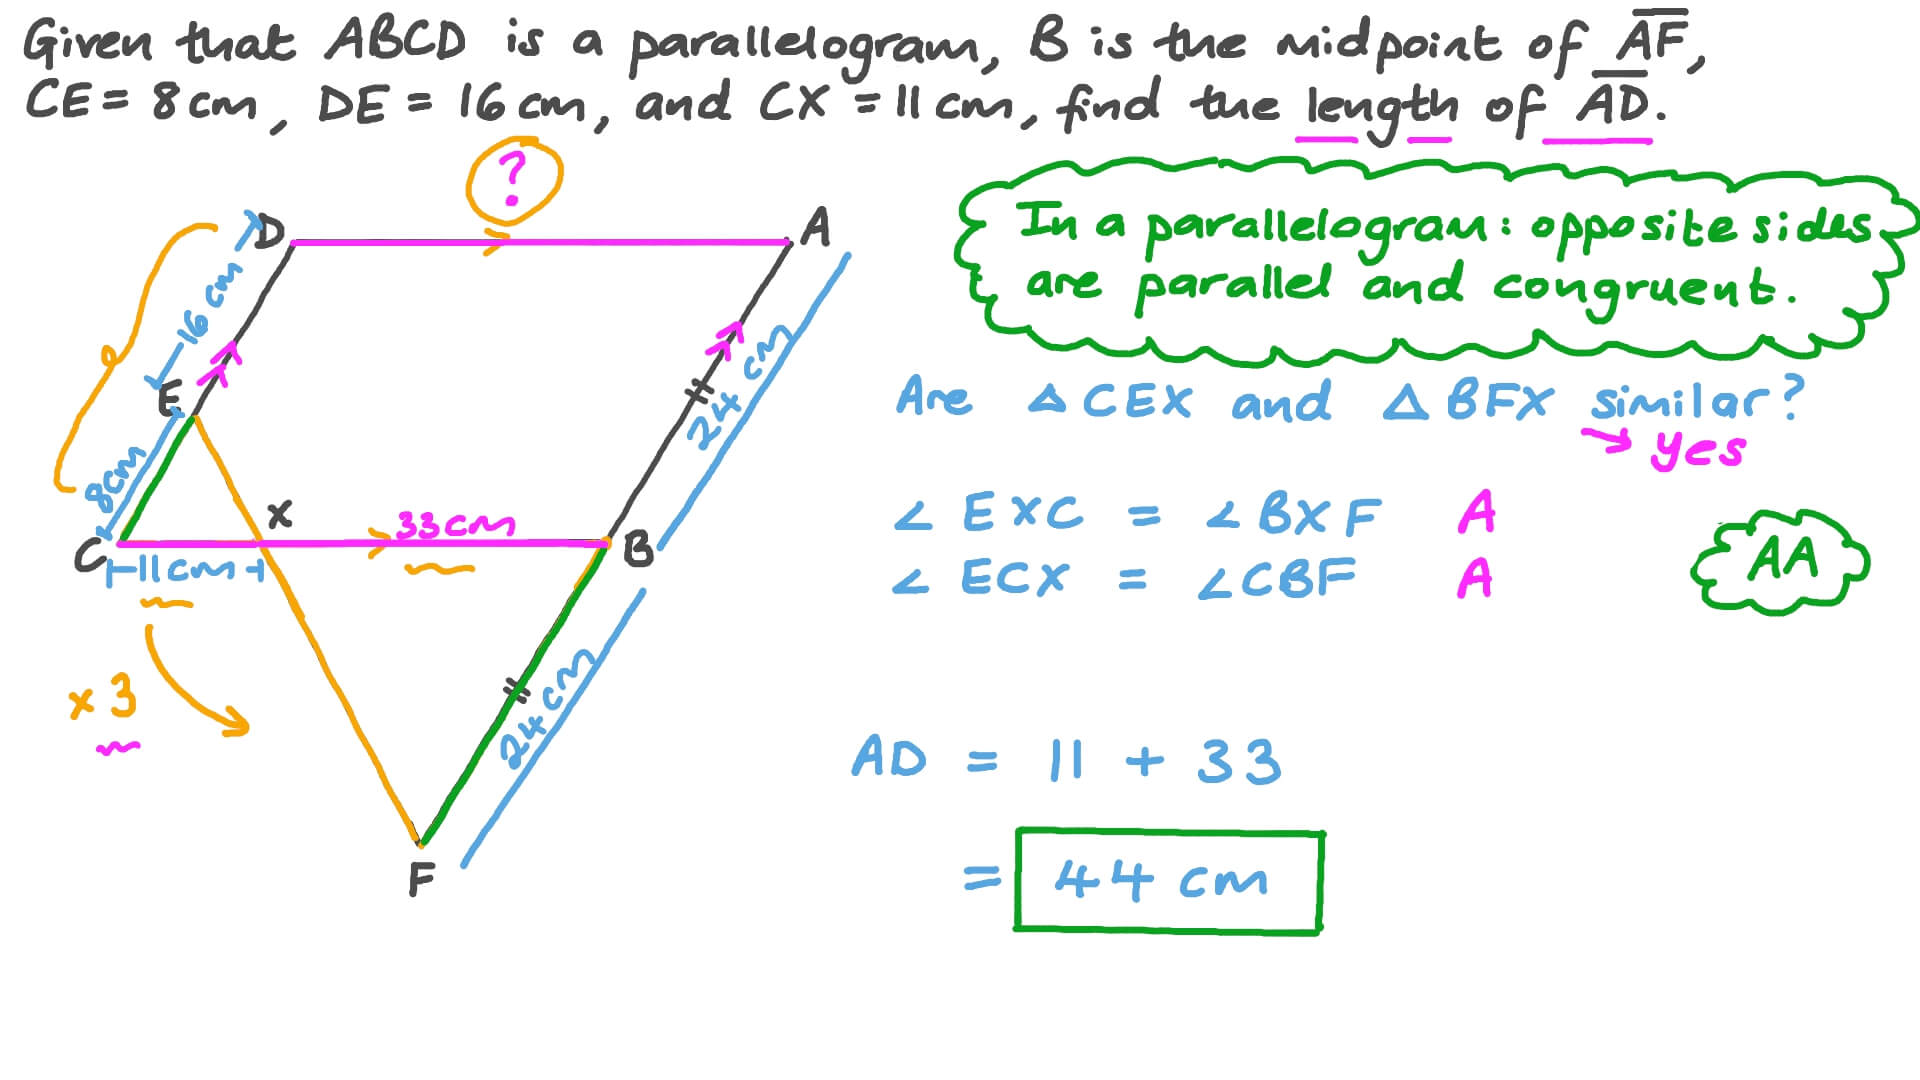 Given that ABCD is a parallelogram, B is the midpoint of AF,
CE = 8 cm, DE = 16 cm, and CX = 11 cm, find the length of AD.
?
D
A
In a parallelogram: opposite sides
are parallel and congruent.
16 cm
24 cm
E
Are △ CEX and △ BFX similar?
→ yes
8cm
X
33 cm
∠ EXC = ∠ BXF A
C
B
11 cm
∠ ECX = ∠ CBF A
AA
× 3
24 cm
AD = 11 + 33
F
= 44 cm